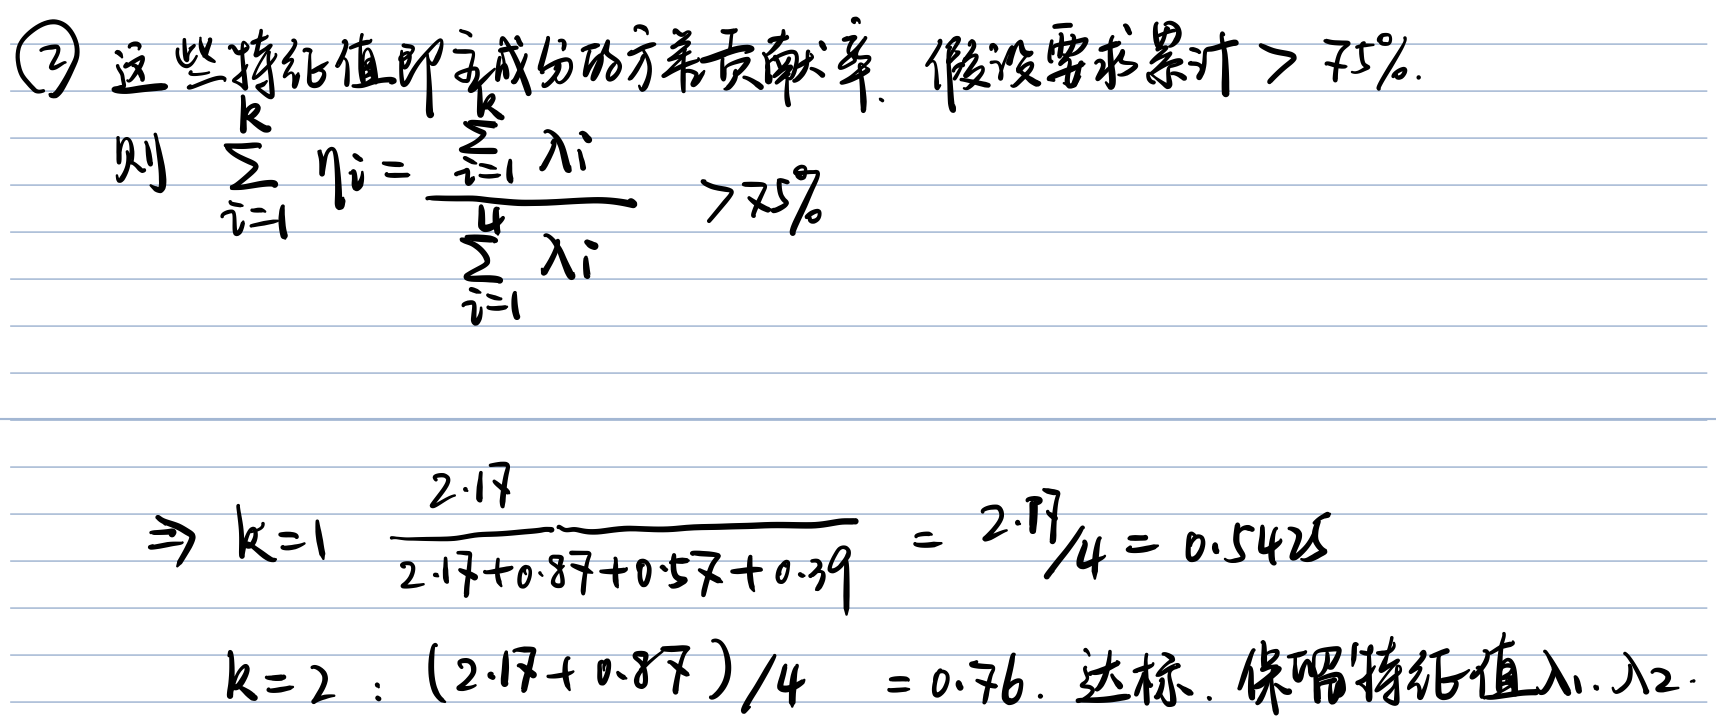 ② 这些特征值即主成分的方差贡献率. 假设要求累计 > 75%.
则 \sum_{i=1}^{k} η_i = \frac{\sum_{i=1}^{k} λ_i}{\sum_{i=1}^{4} λ_i} > 75%
⇒ k=1 \frac{2.17}{2.17+0.87+0.57+0.39} = 2.17/4 = 0.5425
k=2 : (2.17+0.87)/4 = 0.76. 达标. 保留特征值λ1. λ2.